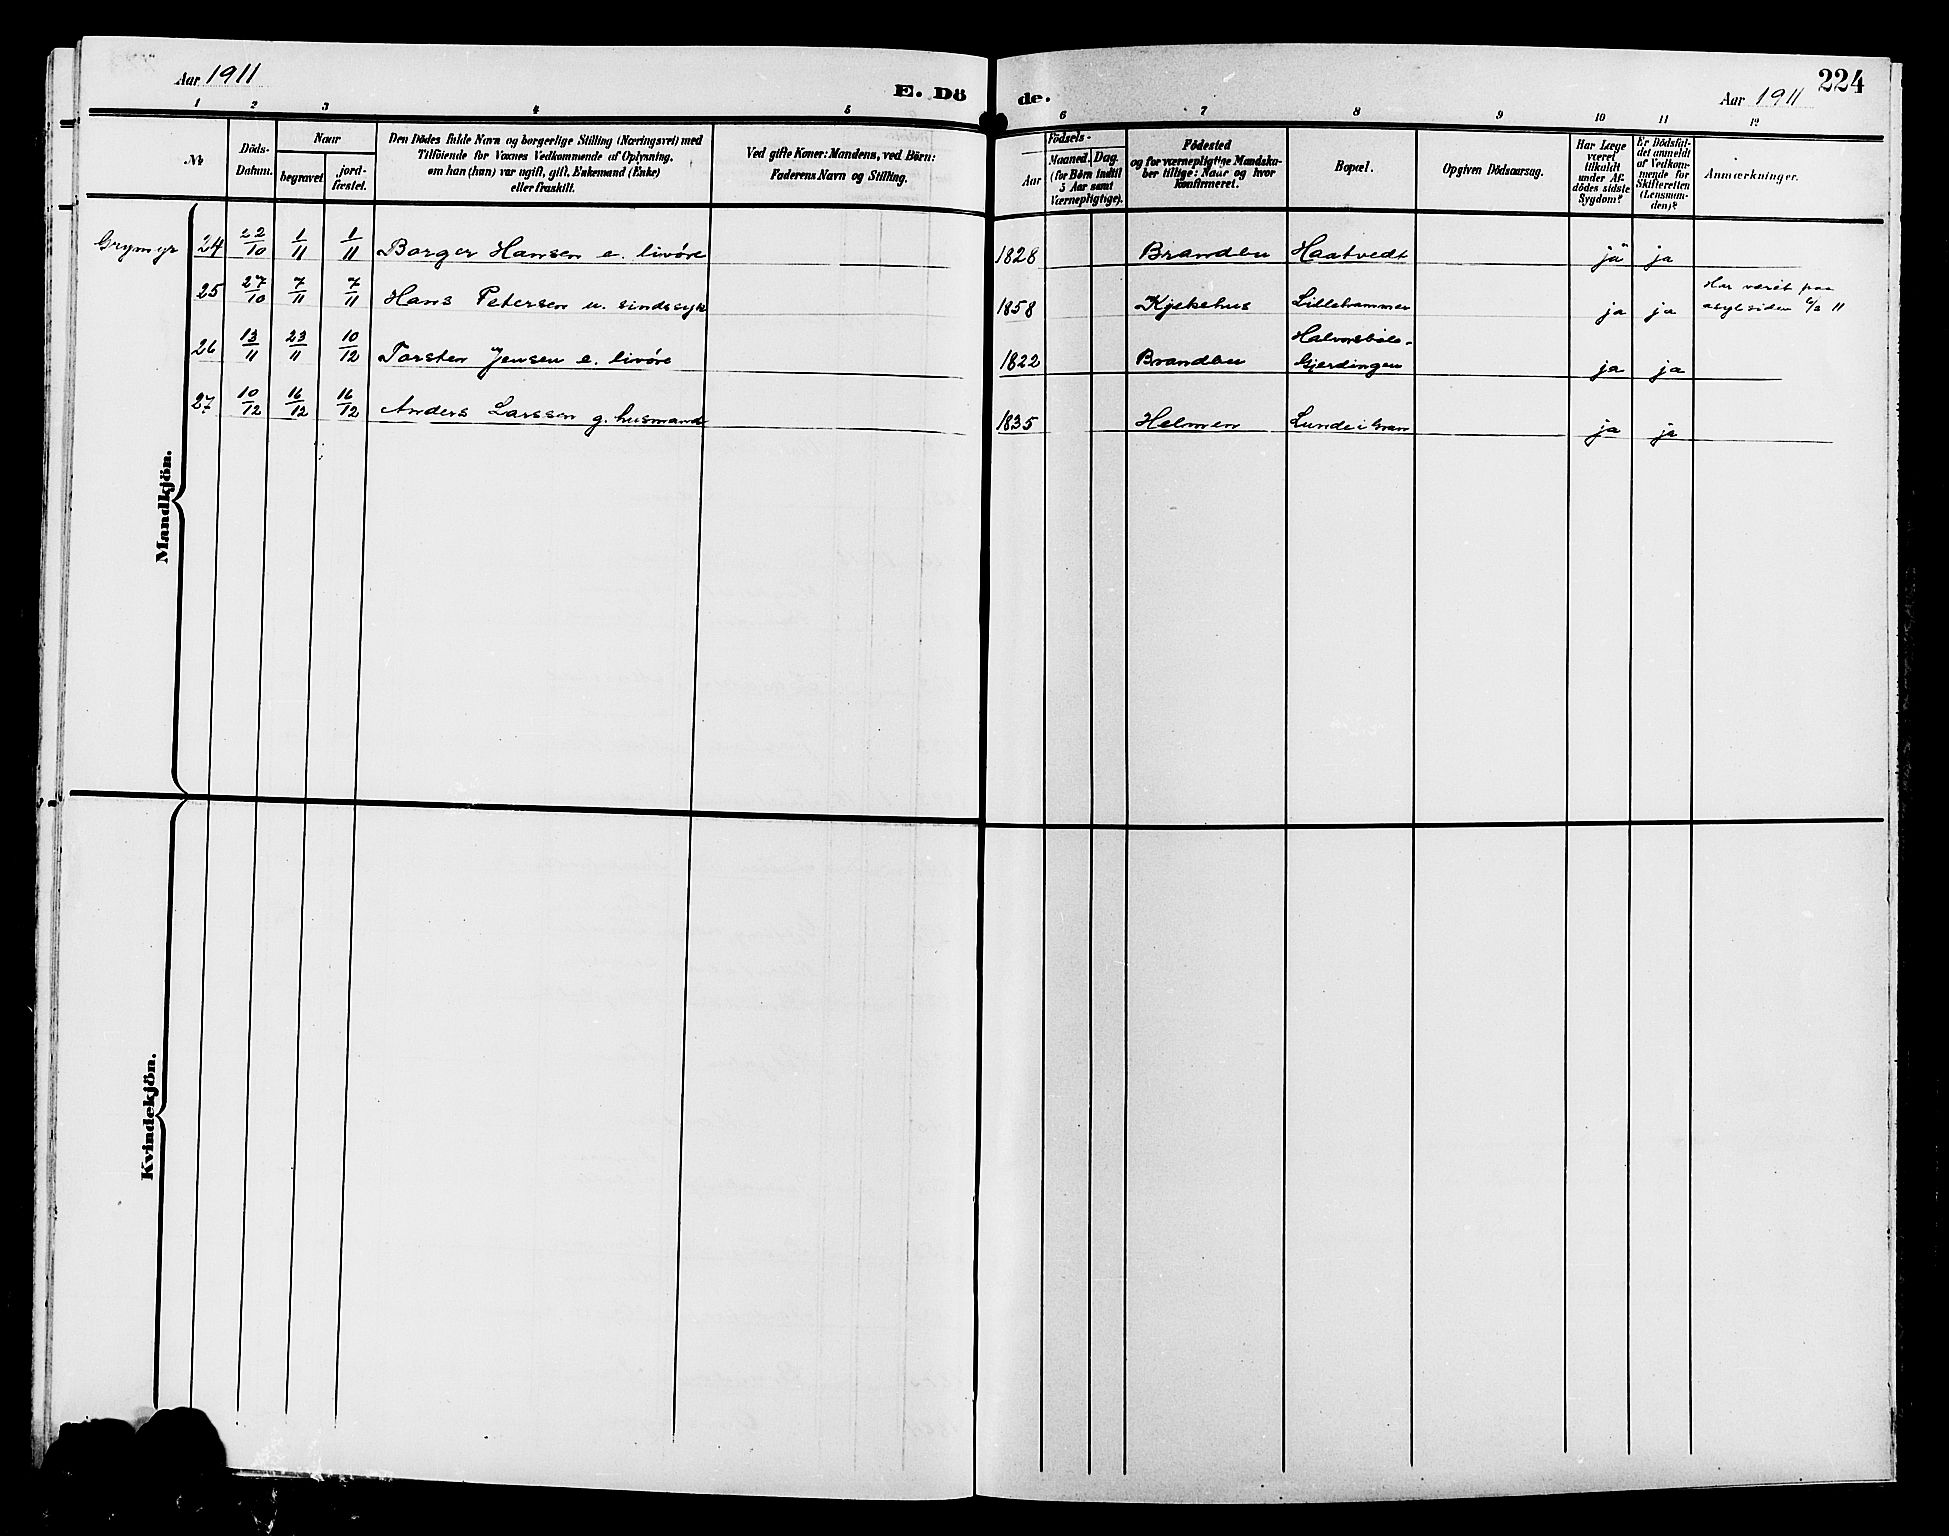 Aar 1911
E. Dö
de.
Aar 1911
224
1 2 3 4 5 6 7 8 9 10 11 12
No
Döds-
Datum.
Naar
begravet.
jord-
fæstet.
Den Dödes fulde Navn og borgerlige Stilling (Næringsvei) med
Tilföiende for Voxnes Vedkommende af Oplysning,
om han (hun) var ugift, gift, Enkemand (Enke)
eller fraskilt.
Ved gifte Koner: Mandens, ved Börn:
Faderens Navn og Stilling.
Födsels-
Aar
Maaned. Dag.
(for Börn indtil
5 Aar samt
Værnepligtige).
Födested
og for værnepligtige Mandska-
ber tillige: Naar og hvor
konfirmeret.
Bopæl.
Opgiven Dödsaarsag.
Har Læge
været
tilkaldt
under Af-
dödes sidste
Sygdom?
Er Dödsfal-
det anmeldt
af Vedkom-
mende for
Skifteretten
(Lensman-
den)?
Anmærkninger.
Grymyr 24 22/10 1/11 1/11 Borger Hansen e. livöre 1828 Brandbu Haatvedt ja ja
25 27/10 7/11 7/11 Hans Petersen u. sindssyk 1858 Kjekshus Lillehammer ja ja Har været paa
asyl siden 11
26 13/11 23/11 10/12 Torsten Jensen e. livöre 1822 Brandbu Halvorsböle-
Gjerdingen ja ja
27 10/12 16/12 16/12 Anders Larssen g. husmand 1835 Helmen Lunde i Gran ja ja
Mandkjön.
Kvindekjön.